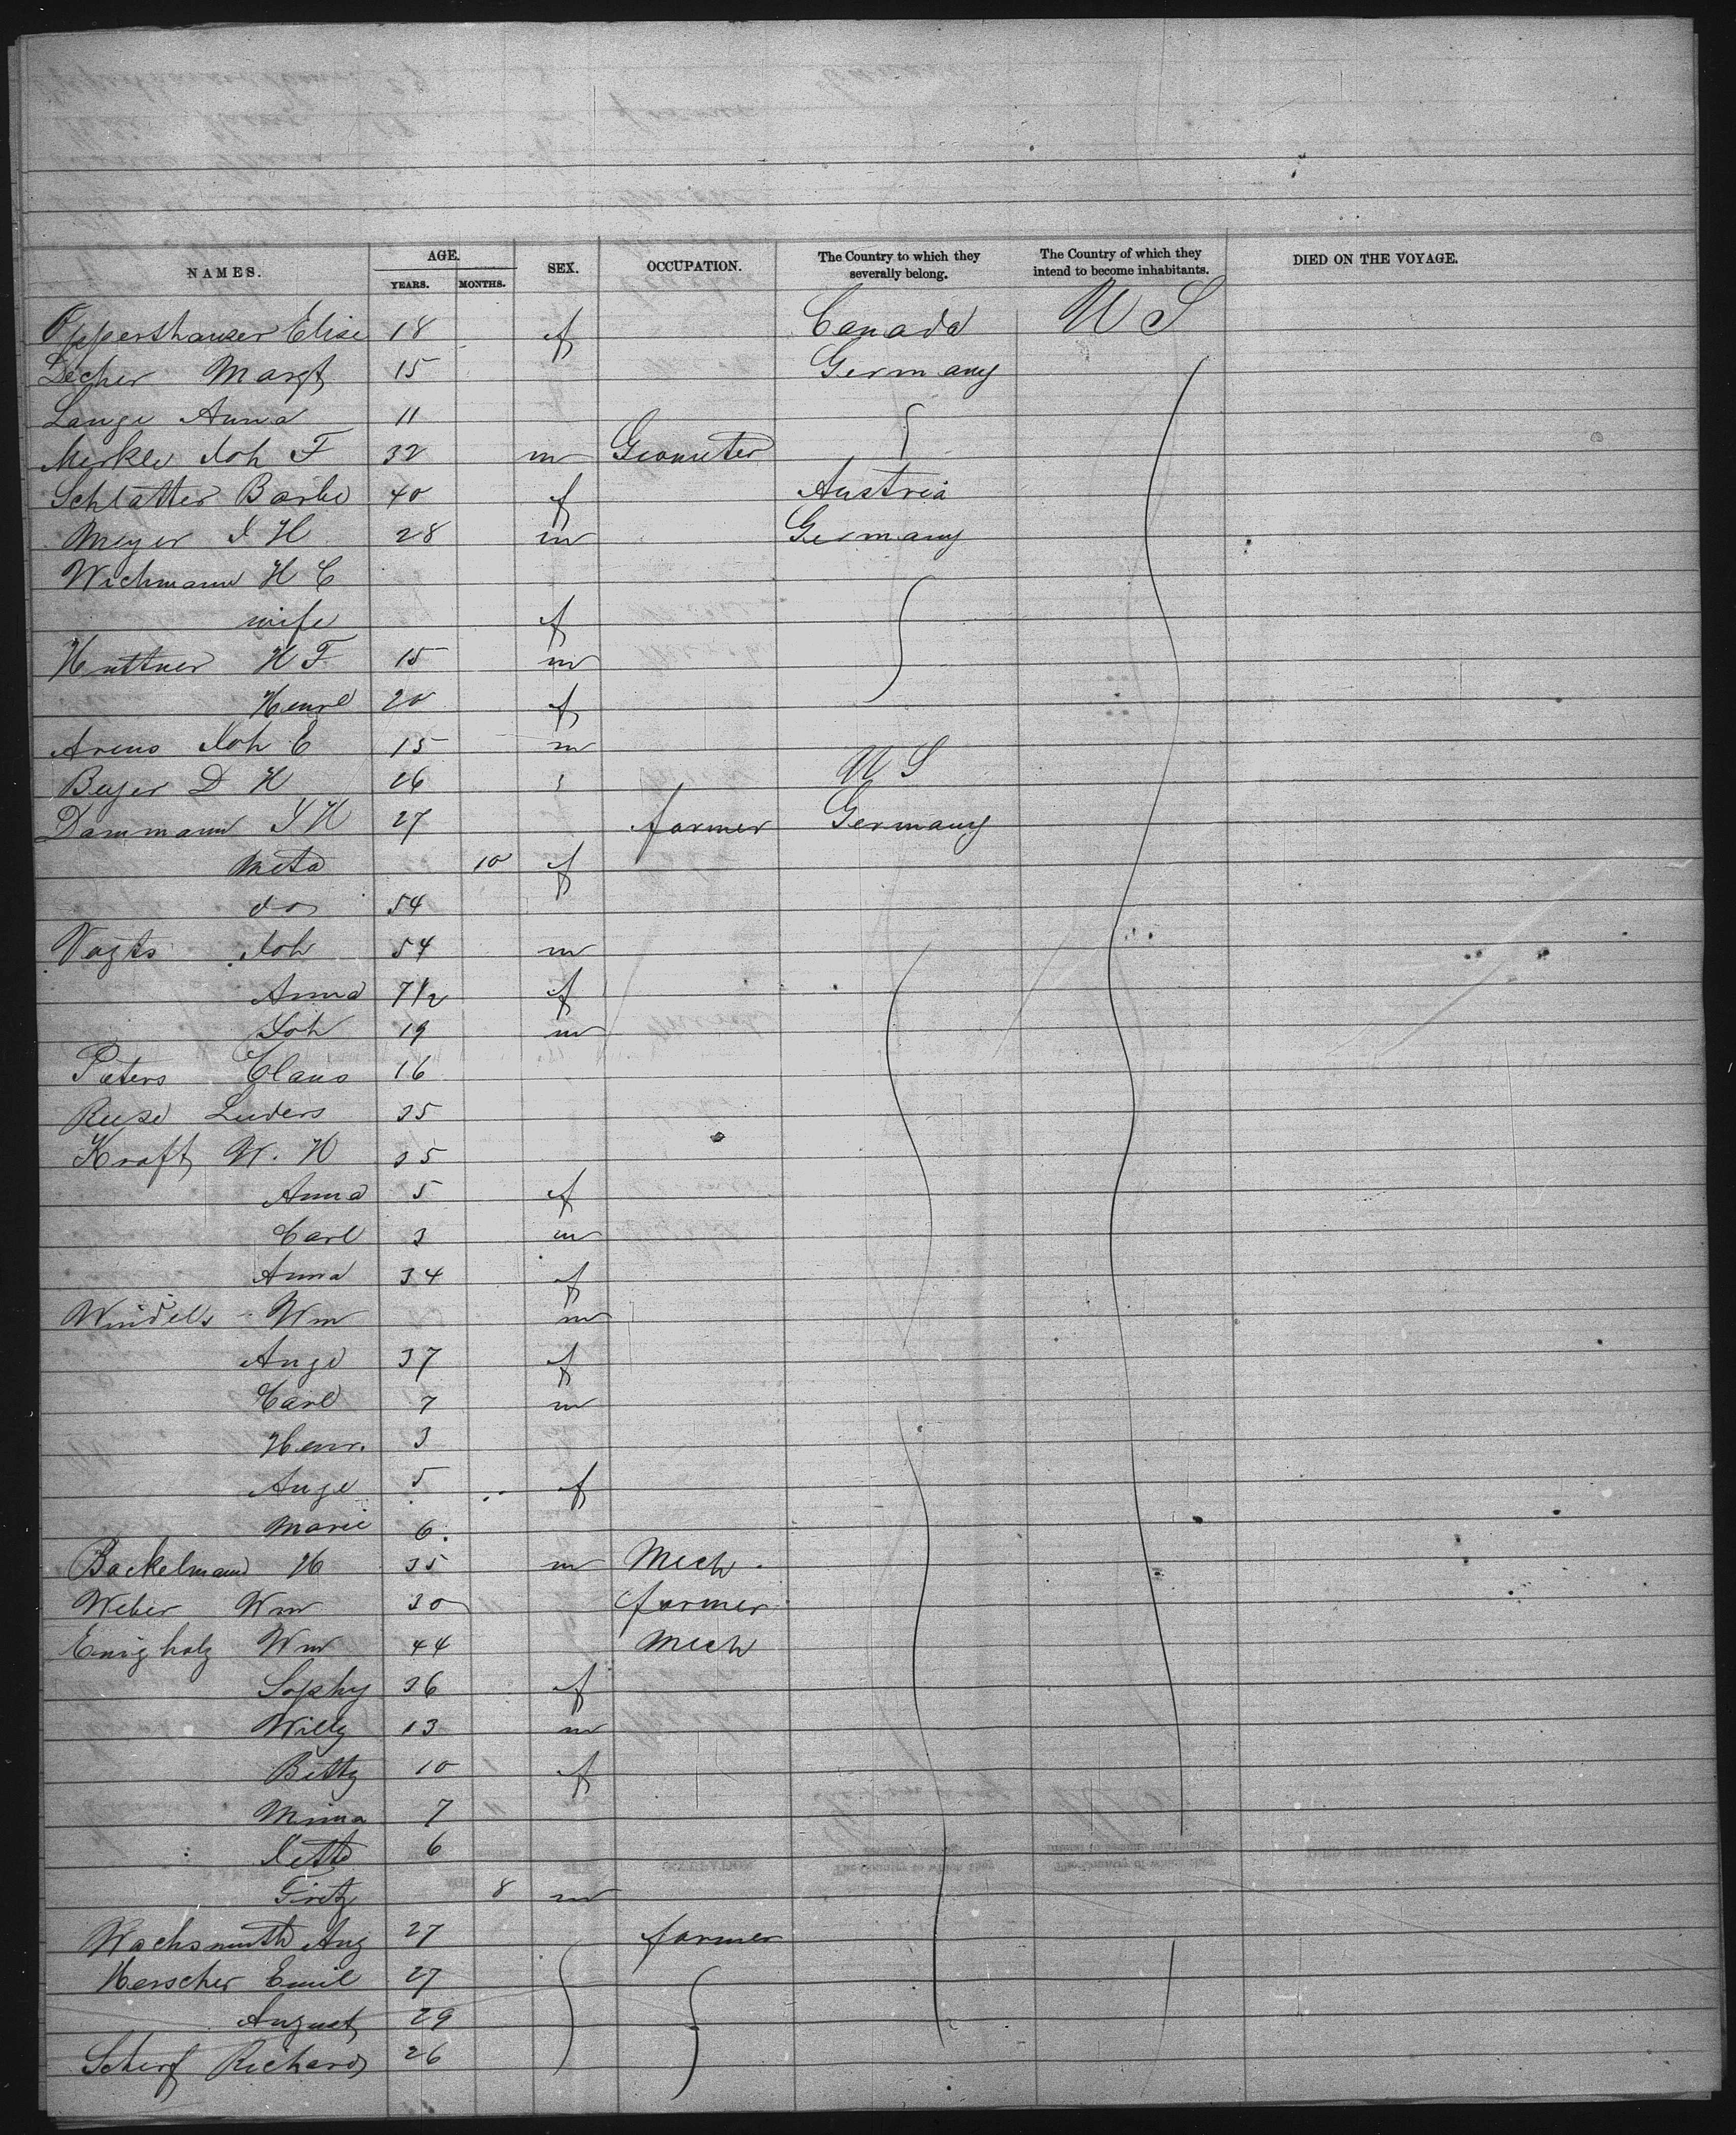 NAMES. AGE. YEARS. MONTHS. SEX. OCCUPATION. The Country to which they severally belong. The Country of which they intend to become inhabitants. DIED ON THE VOYAGE.
Oppershauser Elise 18 f Canada U S
Decher Margt 15 Germany
Lange Anna 11
Merkle Joh F 32 m Geometer
Schlatter Barbe 40 f Austria
Meyer J H 28 m Germany
Wichmann H C
wife f
Huttner H F 15 m
Henre 20 f
Arens Joh C 15 m
Beyer D H 26 U S
Dammann J H 27 farmer Germany
Meta 10 f
do 54
Vagts Joh 54 m
Anna 7 1/2 f
Joh 19 m
Peters Claus 16
Reese Luders 35
Kraft W. H 35
Anna 5 f
Carl 3 m
Anna 34 f
Windels Wm m
Ange 37 f
Carl 7 m
Henr. 3
Ange 5 f
Marie 6
Backelmann H 35 m Mech.
Weber Wm 30 farmer
Enigholz Wm 44 Mech
Sophy 36 f
Willy 13 m
Betty 10 f
Minna 7 "
Jette 6
Fritz 8 m
Wachsmuth Aug 27 farmer
Herscher Emil 27
August 29
Scherf Richard 26